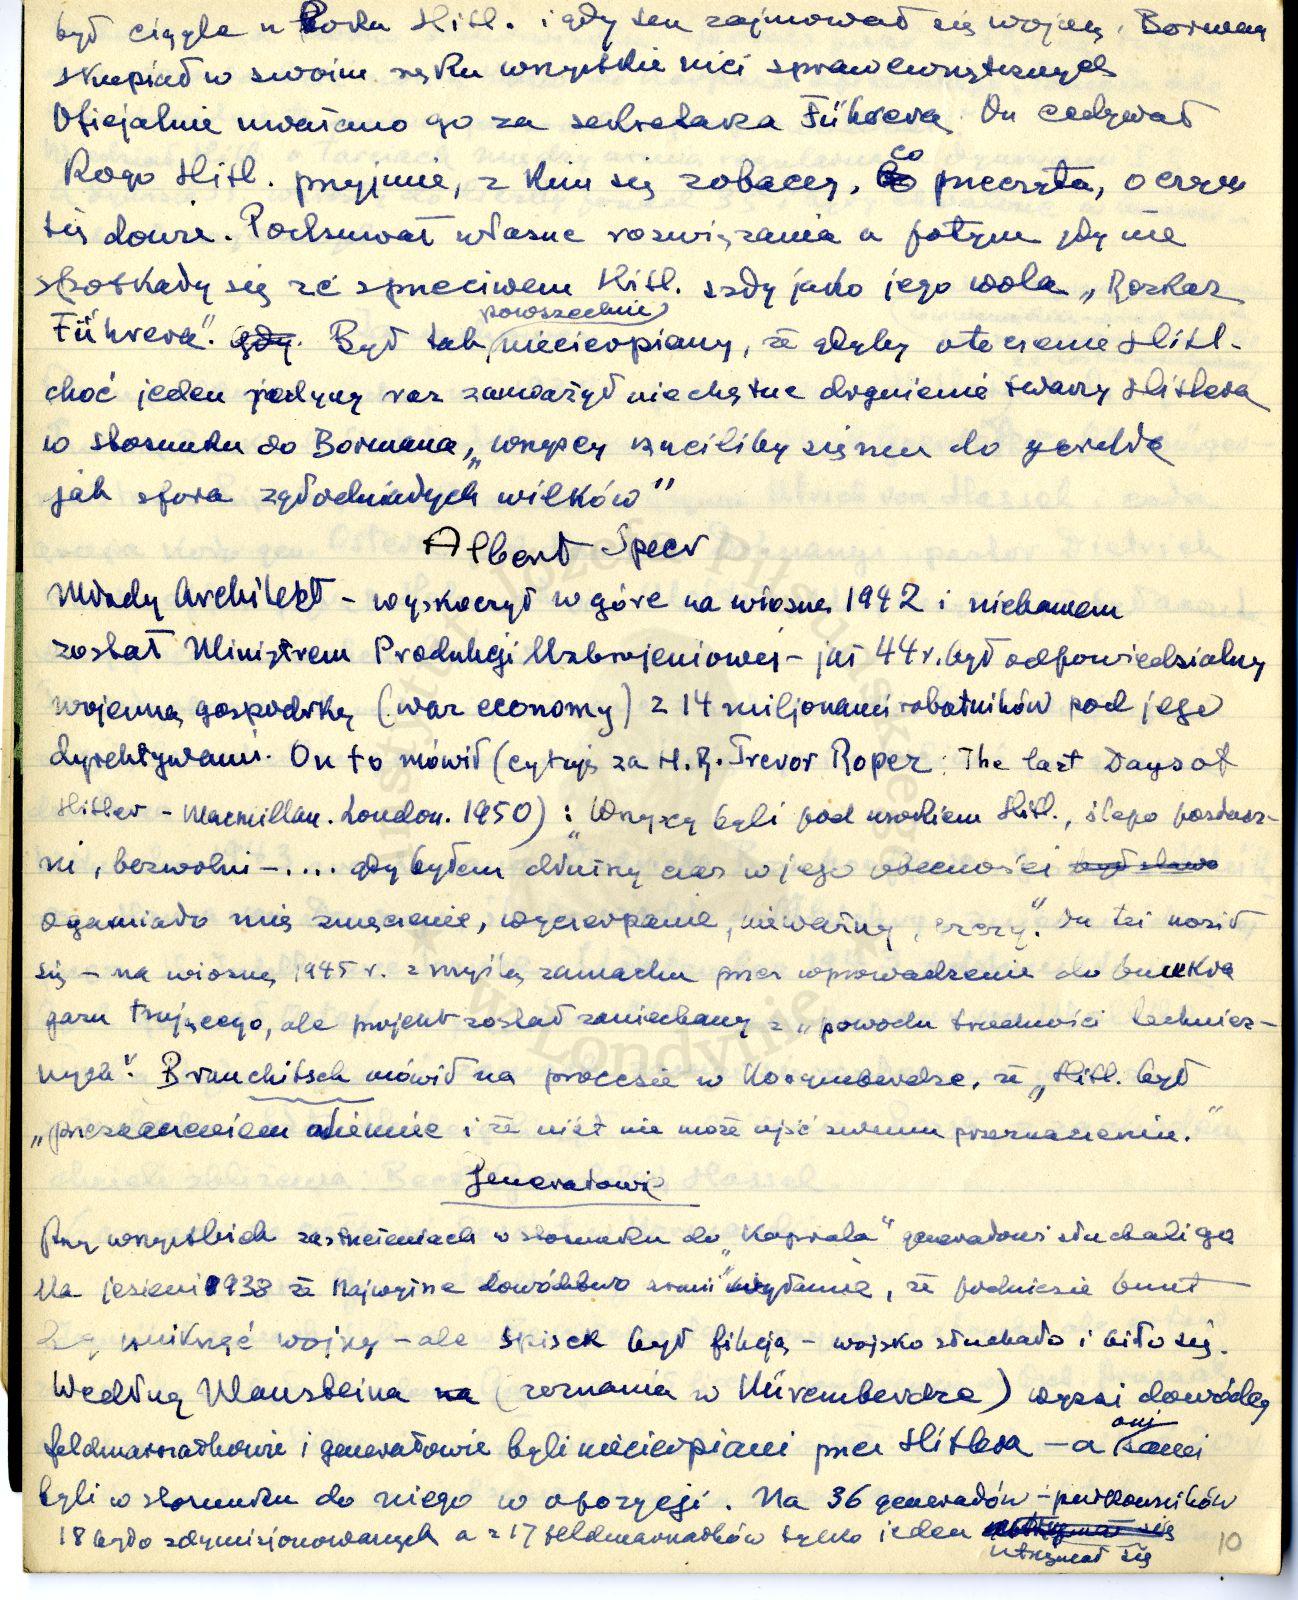 był ciągle u boku Hitl. i gdy ten zajmował się wojną, Borman
skupiał w swoim ręku wszystkie nici spraw wewnętrznych
Oficjalnie uważano go za sekretarza Führera. On cedował
Kogo Hitl. przyjmie, z kim się zobaczy, co przeczyta, o czym
się dowie. Podsuwał własne rozwiązania a potym gdy nie
spotkały się ze sprzeciwem Hitl. szły jako jego wola „Rozkaz
Führera". gdy. Był tak powszechnie niecierpiany, że gdyby otoczenie Hitl.
choć jeden jedyny raz zauważył niechętne drgnienie twarzy Hitlera
w stosunku do Bormana, „wszyscy rzuciliby się mu do gardła
jak sfora zgłodniałych wilków"
Albert Speer
Młody Architekt – wyskoczył w górę na wiosnę 1942 i niebawem
został Ministrem Produkcji Uzbrojeniowej – już 44 r. był odpowiedzialny
wojenną gospodarkę (war economy) z 14 miljonami robotników pod jego
dyrektywami. On to mówił (cytuję za H.R. Trevor Roper: The last Days of
Hitler – Macmillan. London. 1950): „Wszyscy byli pod urokiem Hitl., ślepo posłusz-
ni, bezwolni – .... gdy byłem dłuższy czas w jego obecności
ogarniało mię zmęczenie, wyczerpanie, nieważny, czczy". On też nosił
się – na wiosnę 1945 r. z myślą zamachu przez wprowadzenie do bunkra
gazu trującego, ale projekt został zaniechany z „powodu trudności technicz-
nych". Brauchitsch mówił na procesie w Norymberdze, że „Hitl. był
„przeznaczeniem Niemiec i że nikt nie może ujść swemu przeznaczeniu."
Generałowie
Przy wszystkich zastrzeżeniach w stosunku do „Kaprala" generałowie słuchali go
Na jesieni 1938 że Najwyższe dowództwo armii, że podniesie bunt
uniknąć wojny – ale spisek był fikcją – wojsko słuchało i biło się.
Według Mansteina na (zeznania w Nüremberdze) wyżsi dowódcy
feldmarszałkowie i generałowie byli niecierpiani przez Hitlera – a oni sami
byli w stosunku do niego w opozycji. Na 36 generałów – pułkowników
18 było zdymisjonowanych a z 17 feldmarszałków tylko jeden utrzymał się
10
Instytut Józefa Piłsudskiego w Londynie